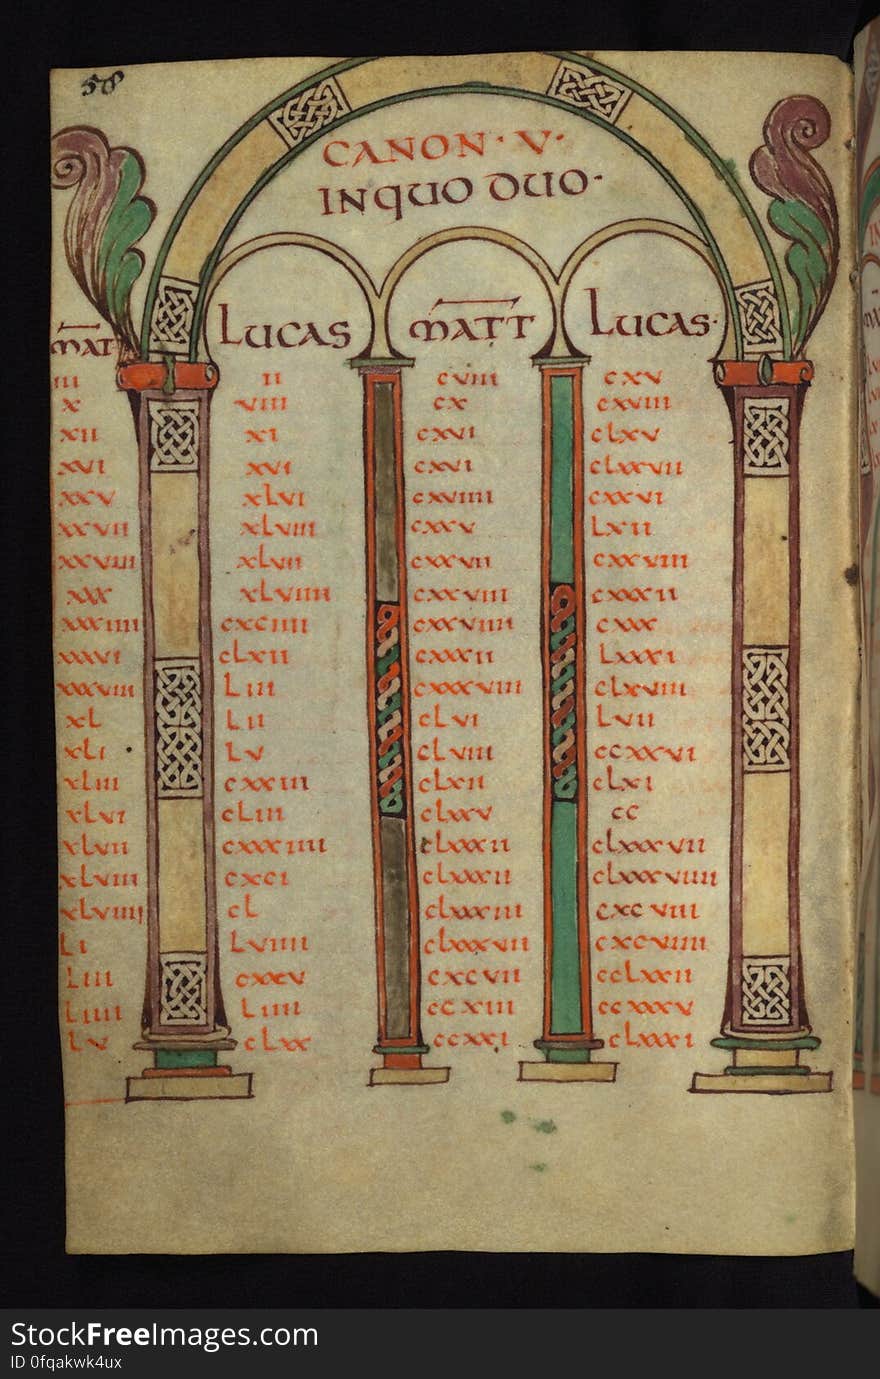 58
CANON · V ·
IN QUO DUO ·
MAT LUCAS MATT LUCAS ·
III II CVIII CXV
X VIII CX CXVIII
XII XI CXVI CLXV
XVI XVI CXVI CLXXVII
XXV XLVI CXVIIII CXXVI
XXVII XLVIII CXXV LXII
XXVIIII XLVII CXXVII CXXVIII
XXX XLVIIII CXXVIII CXXXII
XXXIIII CXCIIII CXXVIIII CXXX
XXXVI CLXII CXXXII LXXXI
XXXVIII LIII CXXXVIII CLXVIII
XL LII CLVI LVII
XLI LV CLVIII CCXXVI
XLIII CXXIII CLXII CLXI
XLVI CLIII CLXXV CC
XLVII CXXXIIII CLXXXII CLXXXVII
XLVIII CXCI CLXXXII CLXXXVIIII
XLVIIII CL CLXXXIII CXCVIII
LI LVIIII CLXXXVII CXCVIIII
LIII CXXV CXCVII CCLXXII
LIIII LIIII CCXIII CCXXXV
LV CLXX CCXXI CLXXXI
StockFreeImages.com
ID 0fqakwk4ux